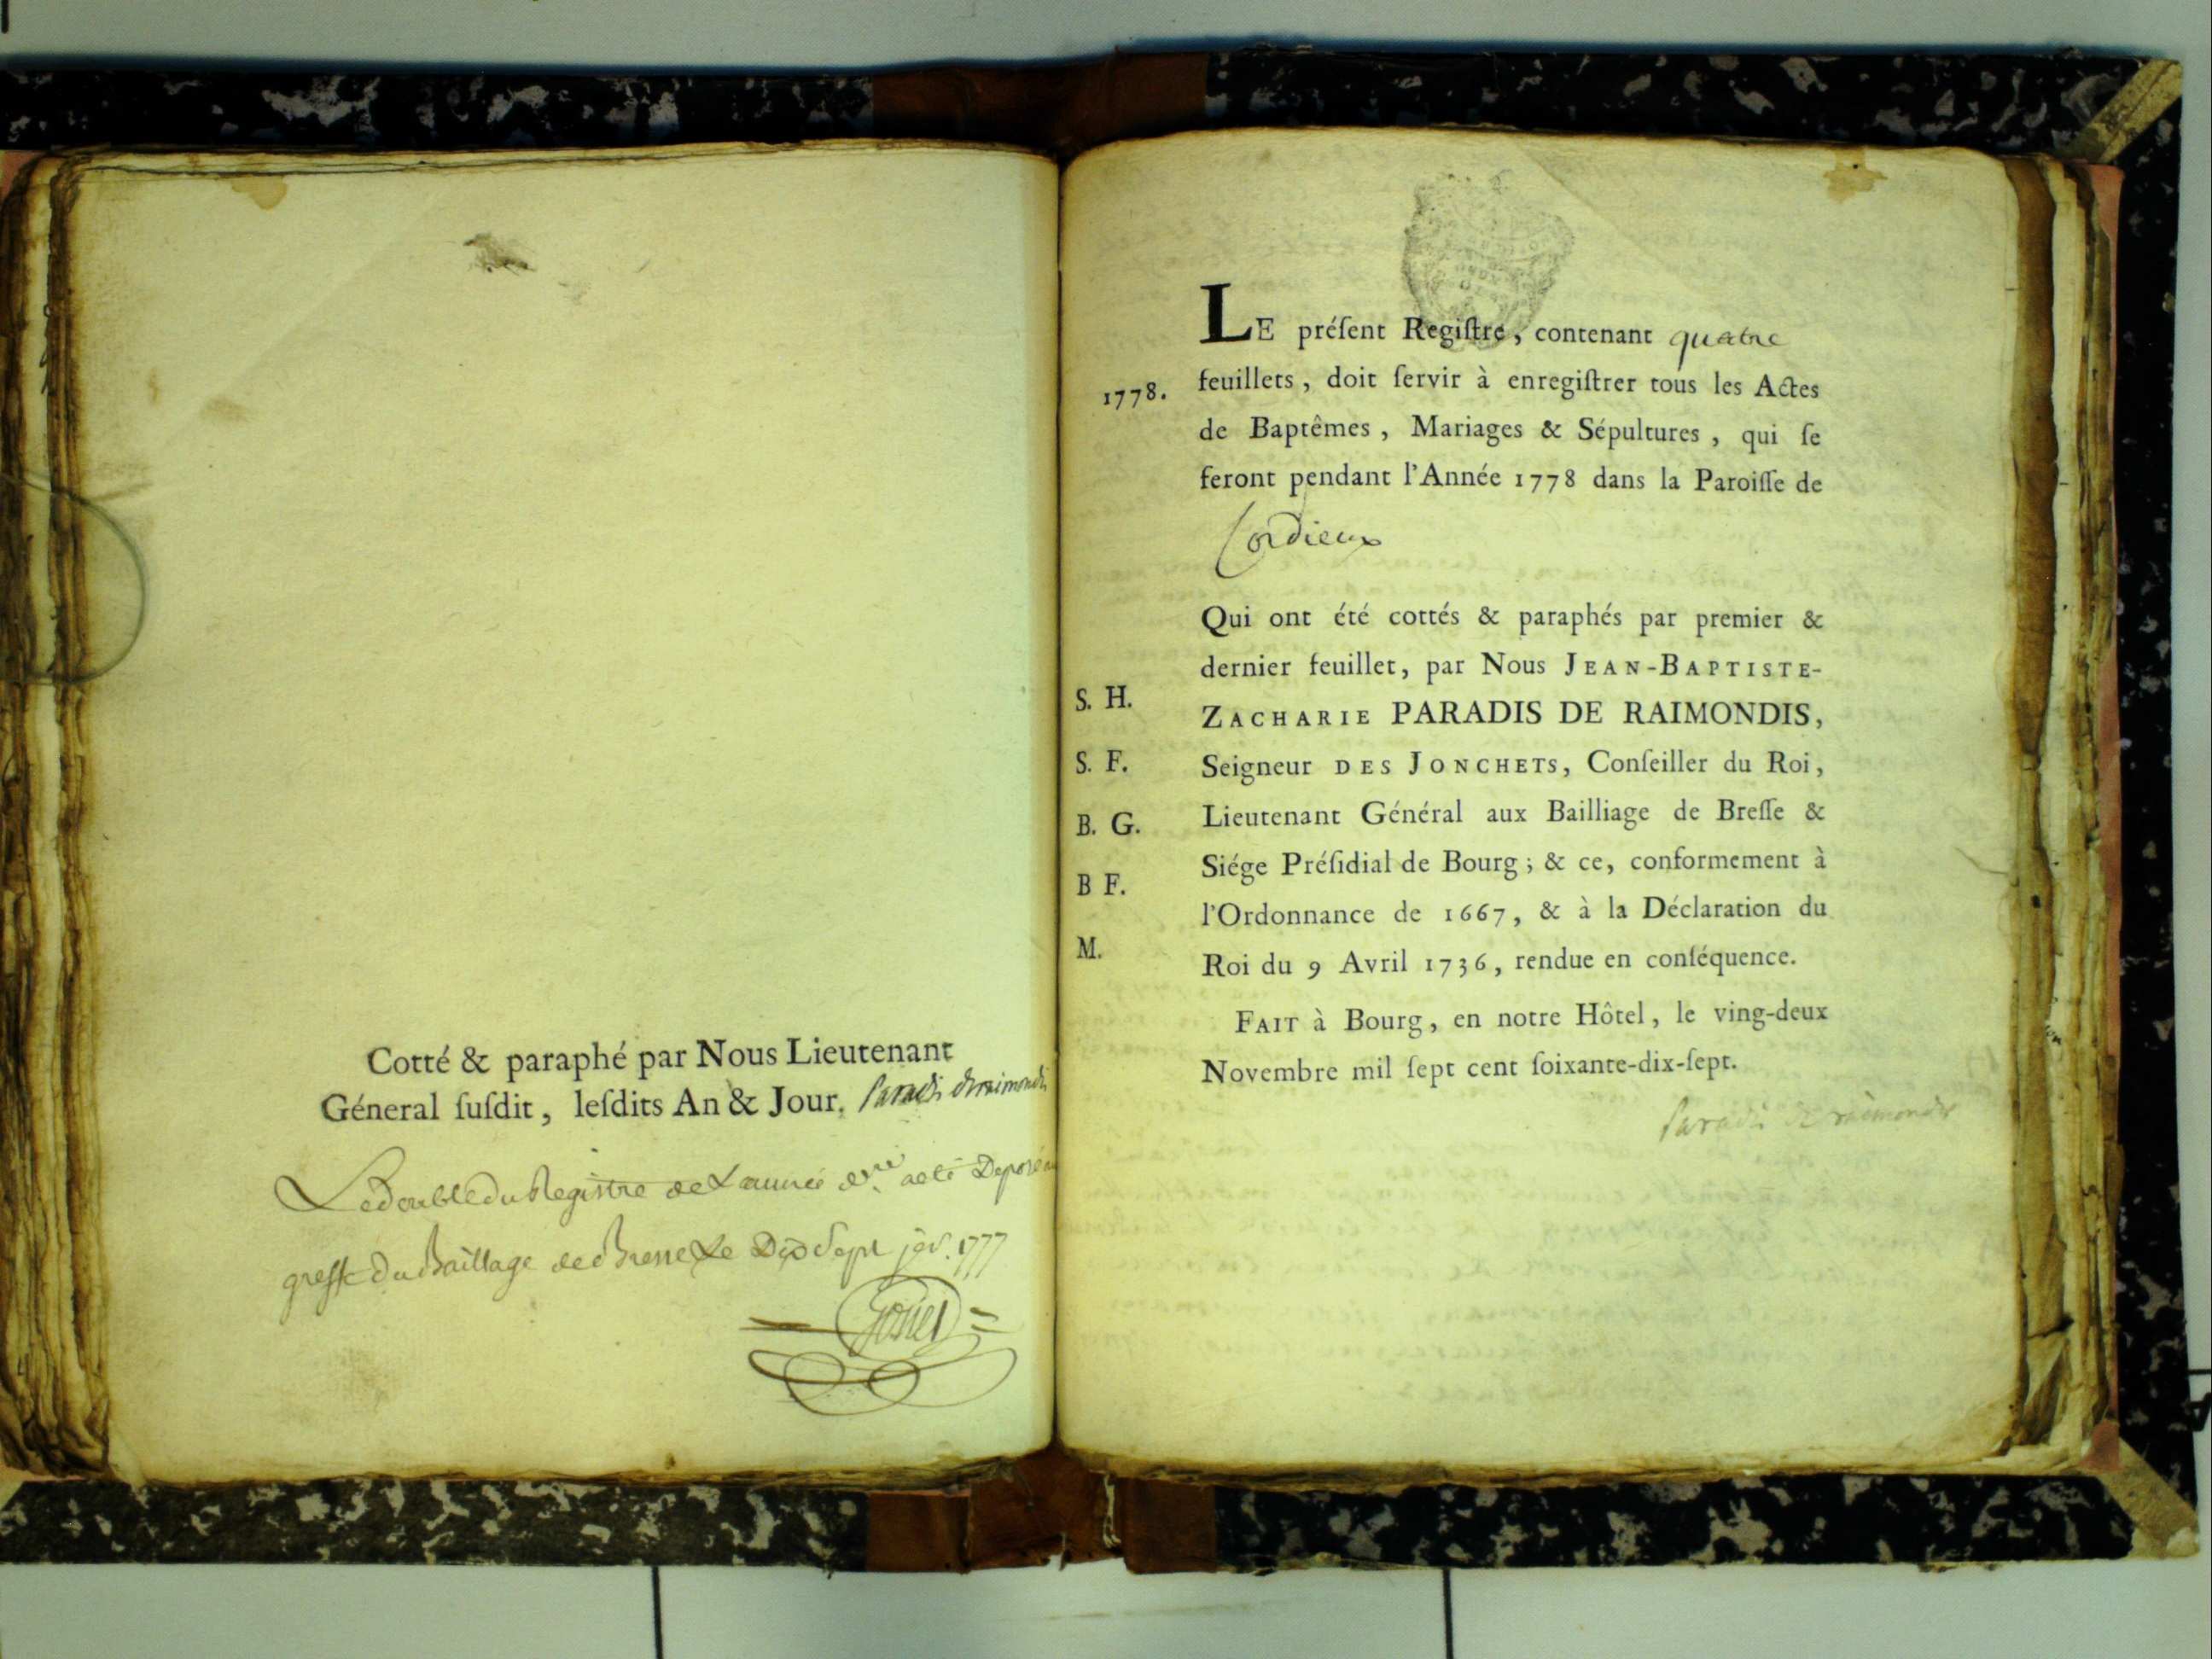 Cotté & paraphé par Nous Lieutenant
Géneral ſuſdit, leſdits An & Jour. Paradis deraimondis
Le double du Registre de Lannée dre a eté Deposé au
greffe du Baillage de Bresse Le Dix Sept jer. 1777
LE préſent Regiſtre, contenant quatre
1778.
feuillets, doit ſervir à enregiſtrer tous les Actes
de Baptêmes, Mariages & Sépultures, qui ſe
feront pendant l'Année 1778 dans la Paroiſſe de
Cordieux
Qui ont été cottés & paraphés par premier &
dernier feuillet, par Nous JEAN-BAPTISTE-
S. H.
ZACHARIE PARADIS DE RAIMONDIS,
S. F.
Seigneur DES JONCHETS, Conſeiller du Roi,
B. G.
Lieutenant Général aux Bailliage de Breſſe &
Siége Préſidial de Bourg; & ce, conformement à
B F.
l'Ordonnance de 1667, & à la Déclaration du
M.
Roi du 9 Avril 1736, rendue en conſéquence.
FAIT à Bourg, en notre Hôtel, le ving-deux
Novembre mil ſept cent ſoixante-dix-ſept.
Paradis de raimondis